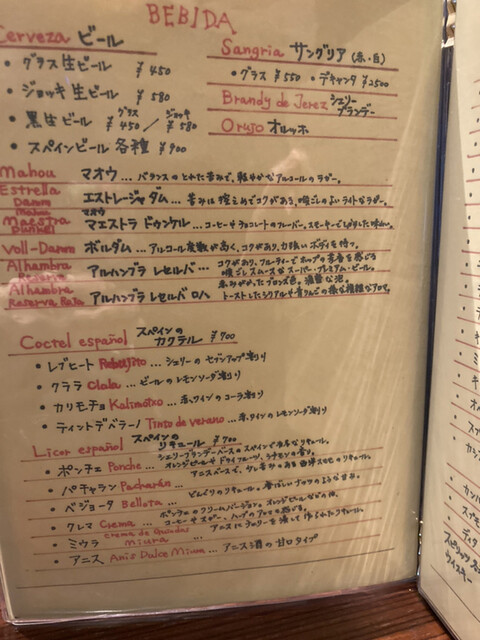 BEBIDA
Cerveza ビール
・グラス生ビール ¥450
・ジョッキ生ビール ¥580
・黒生ビール グラス ¥450 / ジョッキ ¥580
・スペインビール各種 ¥900
Sangria サングリア (赤・白)
・グラス ¥550 ・デキャンタ ¥2500
Brandy de Jerez シェリーブランデー
Orujo オルッホ
Mahou マオウ ... バランスのとれた苦みで、軽やかなアルコールのラガー。
Estrella Damm エストレージャ ダム ... 苦みは控えめでコクがあり、喉ごしのよいライトなラガー。
Mahou Maestra Dunkel マオウ マエストラ ドゥンケル ... コーヒーやチョコレートのフレーバー。スモーキーでしっかりした味わい。
Voll-Damm ボルダム ... アルコール度数が高く、コクがあり、力強いボディを持つ。
Alhambra Reserva アルハンブラ レセルバ ... コクがあり、フルーティーでホップの芳香を感じる
喉ごしスムースなスーパー・プレミアム・ビール。
Alhambra Reserva Roja アルハンブラ レセルバ ロハ 赤みがかったブロンズ色。濃密な泡。
トーストしたシリアルや青りんごの様な複雑なアロマ。
Coctel español スペインのカクテル ¥700
・レブヒート Rebujito ... シェリーのセブンアップ割り
・クララ Clala ... ビールのレモンソーダ割り
・カリモチョ Kalimotxo ... 赤ワインのコーラ割り
・ティントデバラーノ Tinto de verano ... 赤ワインのレモンソーダ割り
Licor español スペインのリキュール ¥700
・ポンチェ Ponche ... シェリーブランデーベースのスペインで有名なリキュール。
オレンジピールやドライフルーツ、シナモンの香り。
・パチャラン Pacharán ... アニスベースで、甘い苦みのある西洋スモモのリキュール。
・ベジョータ Bellota ... どんぐりのリキュール。香ばしいナッツのような甘み。
・クレマ Crema ... ポンチェのクリームバージョン。オレンジピールなどの他、
・ミウラ Miura ... アニスにチェリーを漬して作られたリキュール。
・アニス Anis Dulce Miura ... アニス酒の甘口タイプ
スピリッツ
ウイスキー